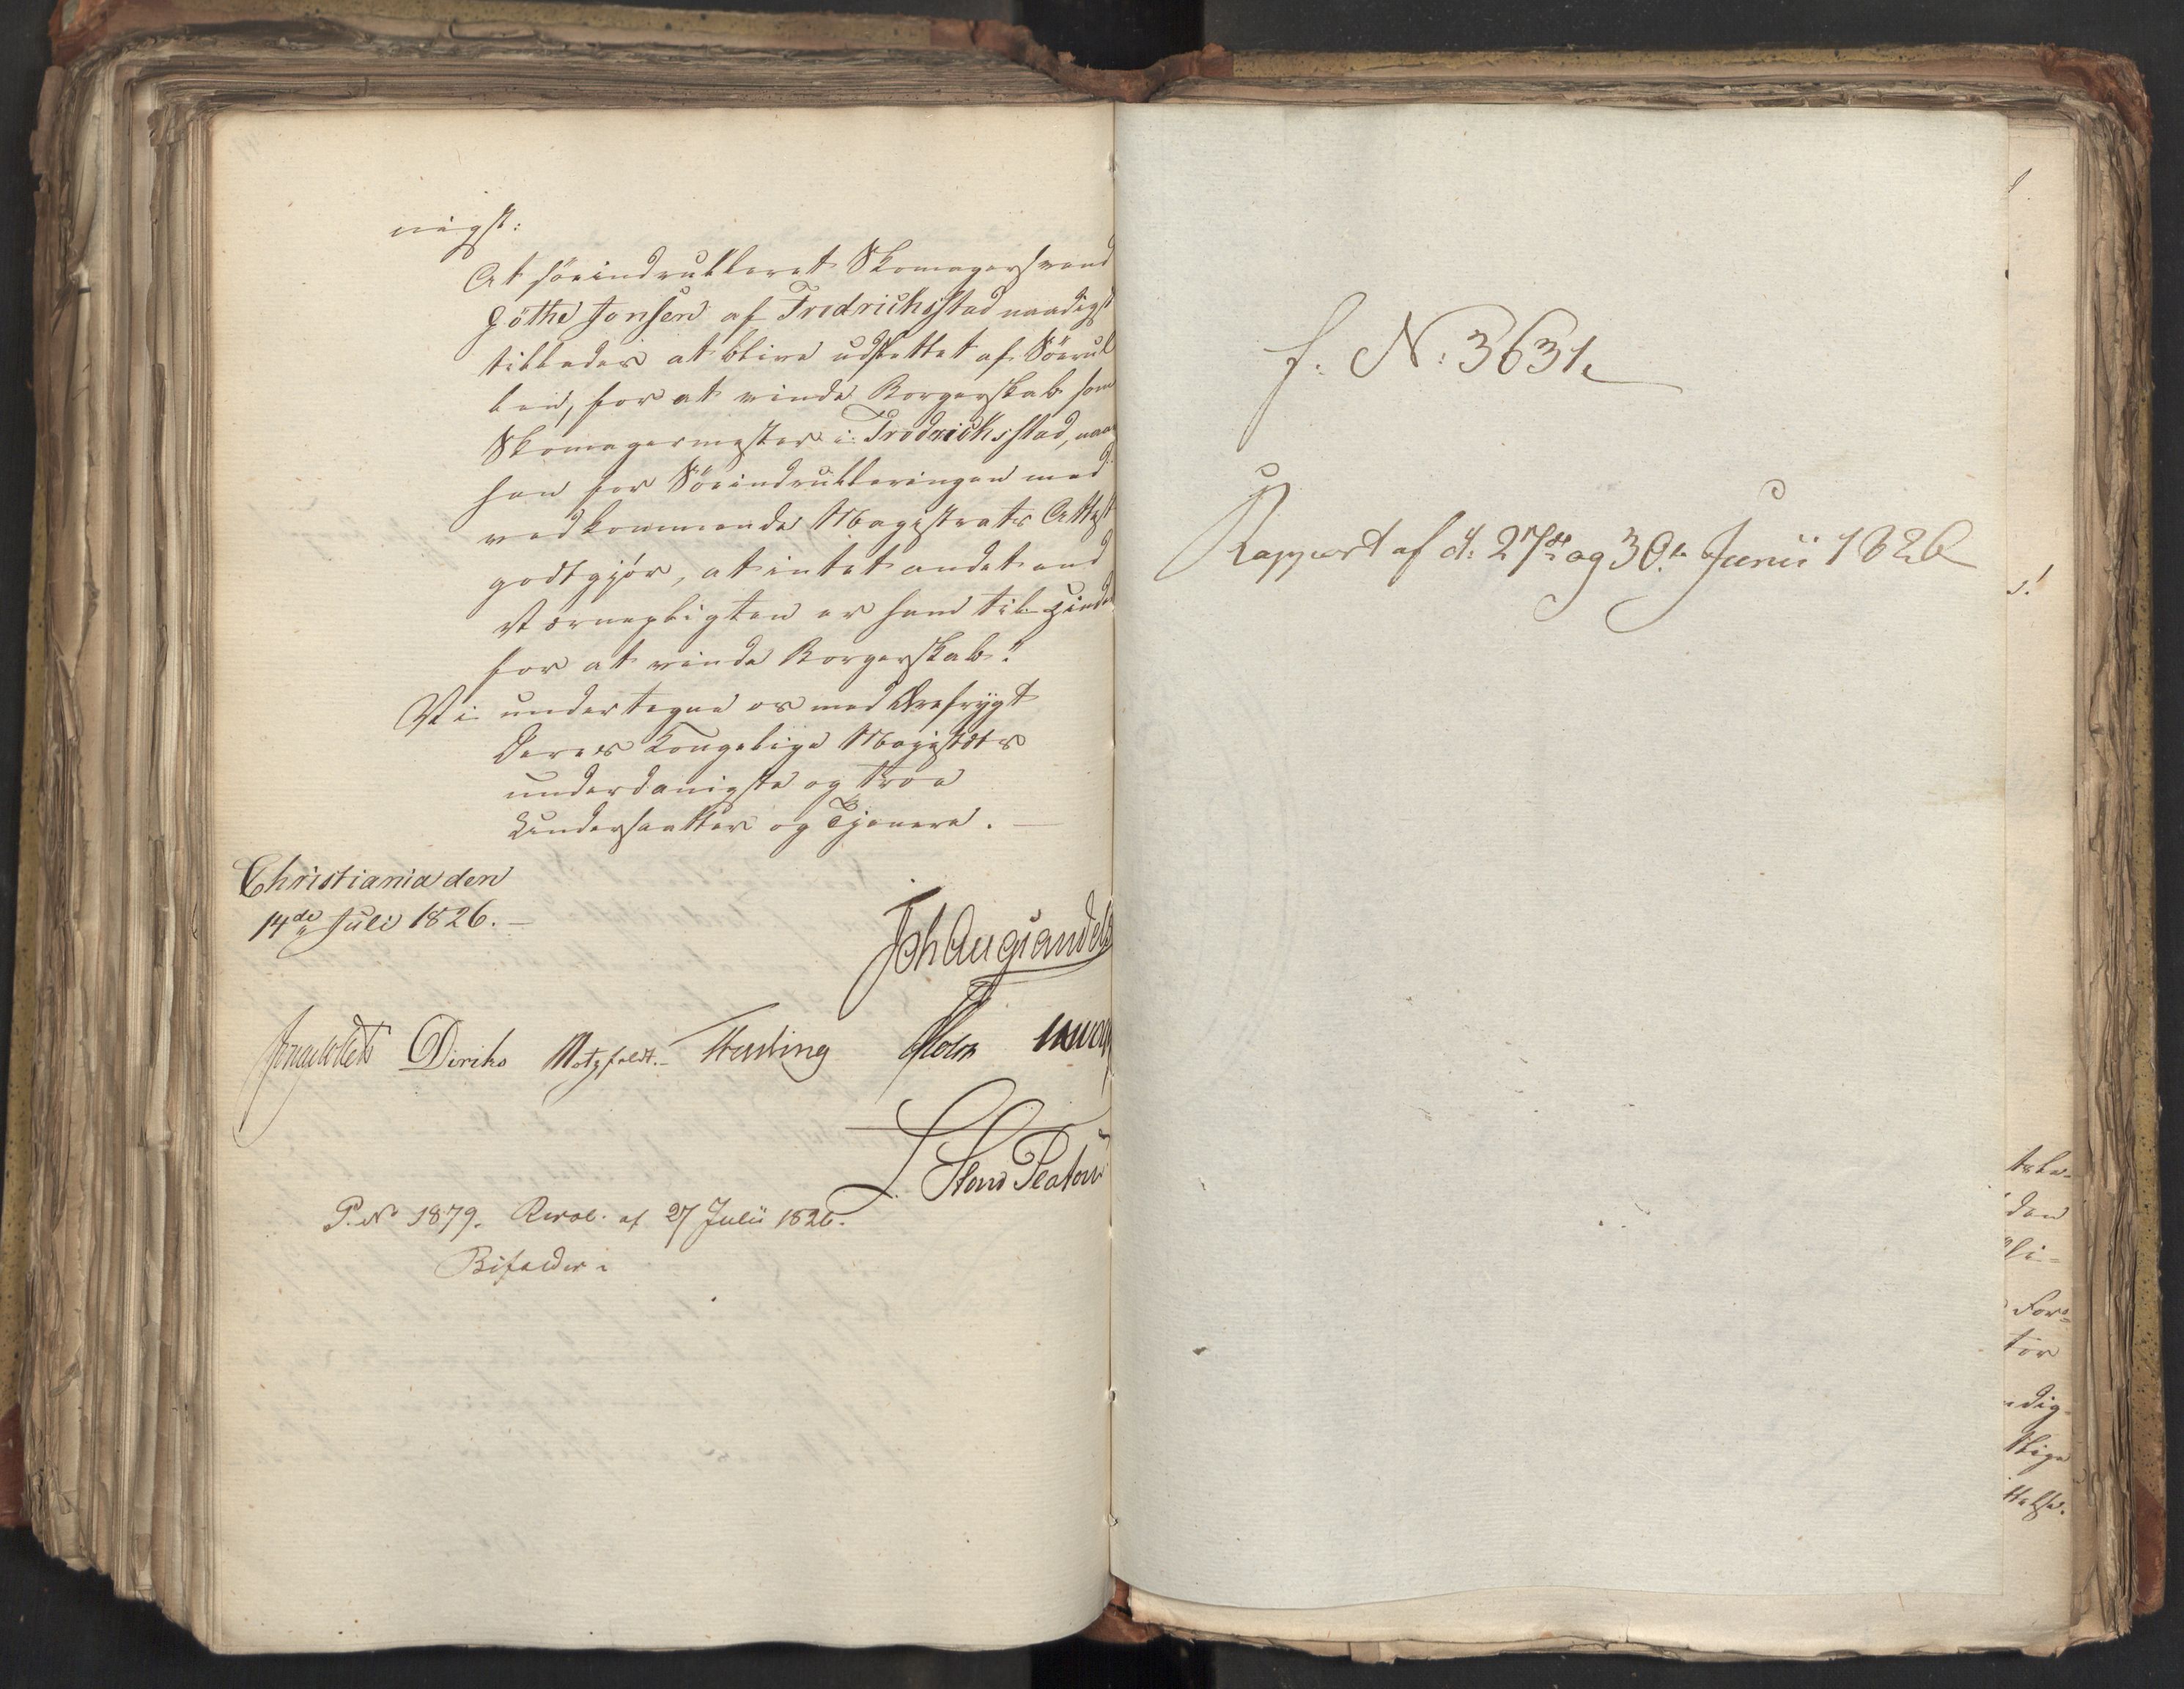 nigst:
At söeindrulleret Skomagersvend
Göthe Jonsen af Fredrichsstad naadigst
tillades at blive udslettet af Söerul
len, for at vinde Borgerskab som
Skomagermester i Fredrichsstad, naar
han for Söeindrulleringen med
vedkommende Magistrats Attest
godtgjör, at intet andet end
Værnepligten er ham til Hinder
for at vinde Borgerskab.
Vi undertegne os med Ærefrygt
Deres Kongelige Majestæts
underdanigste og troe
Undersaatter og Tjenere. —
Christiania den
14de Juli 1826. —
Joh Aug Sandels
Diriks Motzfeldt. Treschow Holst
P. No 1879. Resol. af 27 Julii 1826.
Bifaldes
f. N: 3631.
Rapport af d: 27de og 30te Junii 1826
tor